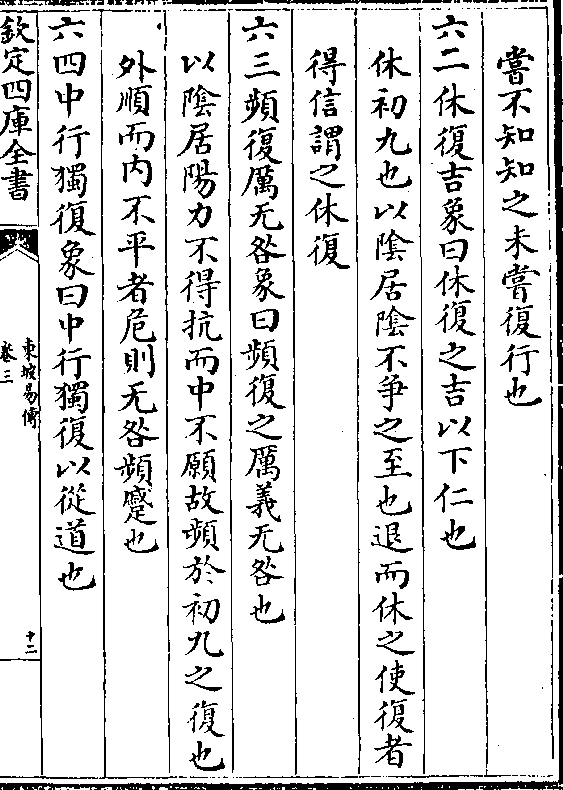 嘗不知知之未嘗復行也
六二休復吉象曰休復之吉以下仁也
休初九也以陰居陰不爭之至也退而休之使復者
得信謂之休復
六三頻復厲无咎象曰頻復之厲義无咎也
以陰居陽力不得抗而中不願故頻於初九之復也
外順而内不平者危則无咎頻蹙也
六四中行獨復象曰中行獨復以從道也
欽定四庫全書
東坡易傳
卷三
十二